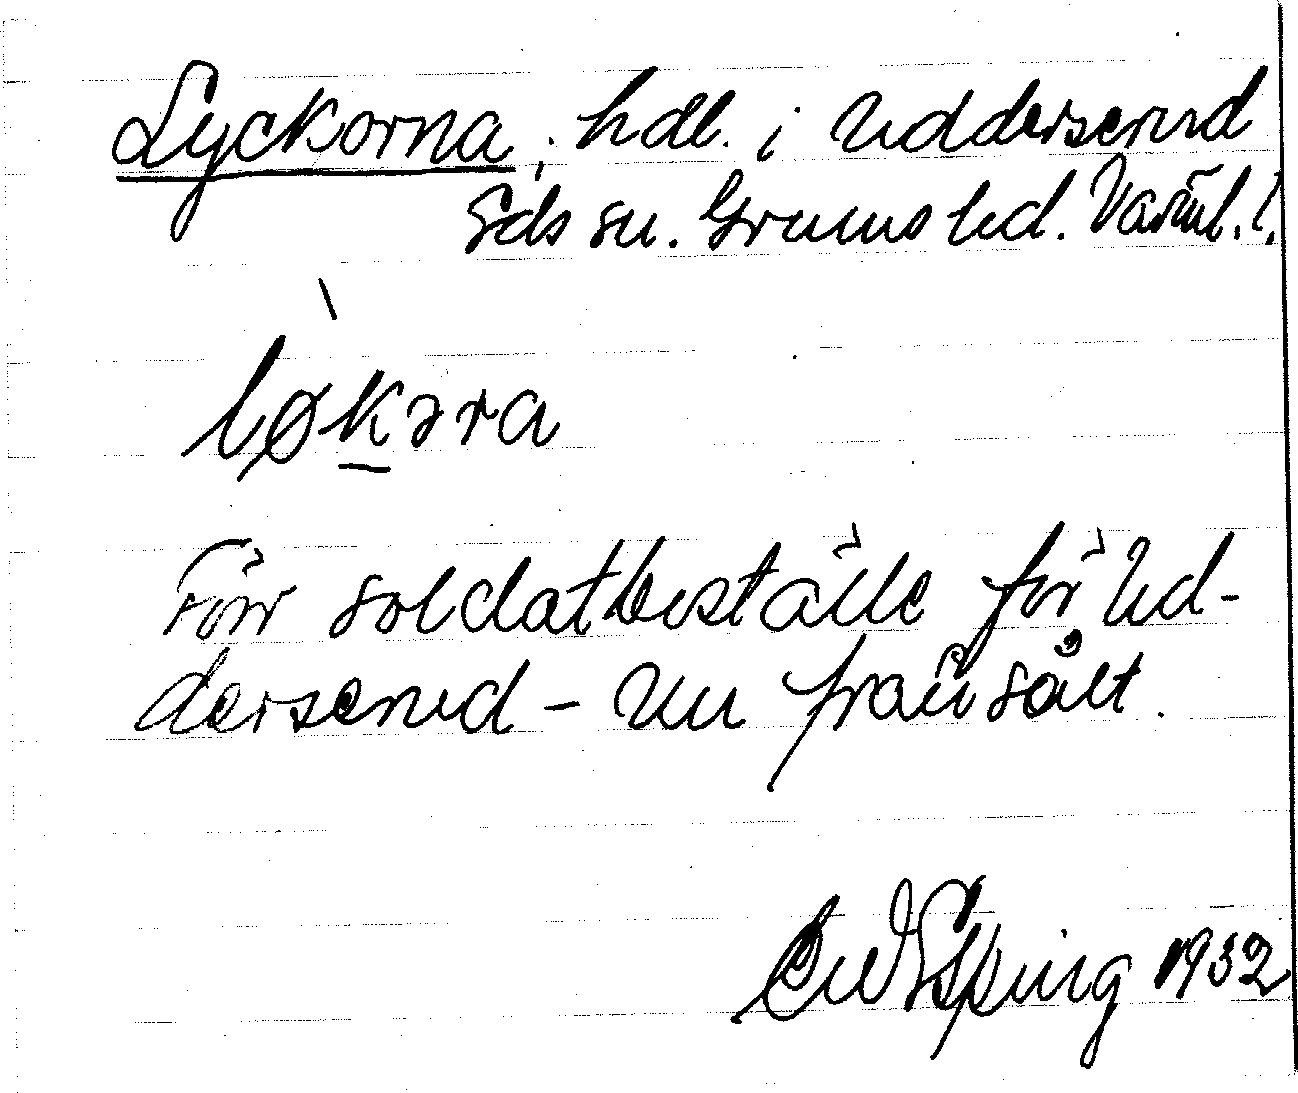 Lyckorna, hdl. i Uddersrud
Eds sn. Grums hd. Värml. l.
løkəra
Förr soldatbeställe för Ud-
dersrud – nu frånsålt.
1932